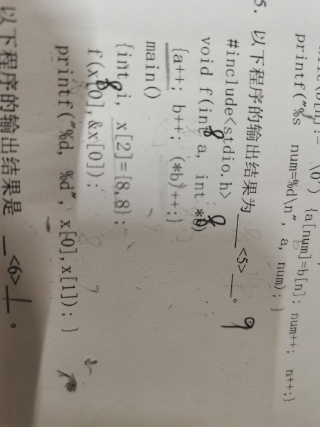 \0') {a[num]=b[n]; num++; n++;}
printf("%s num=%d\n", a, num); }
5. 以下程序的输出结果为 <5> 。 9
#include<stdio.h>
void f(int a, int *b)
8 8
{a++; b++; (*b)++;}
main()
{int i, x[2]={8,8};
8
f(x[0],&x[0]);
printf("%d, %d", x[0],x[1]); }
以下程序的输出结果是 <6> 。